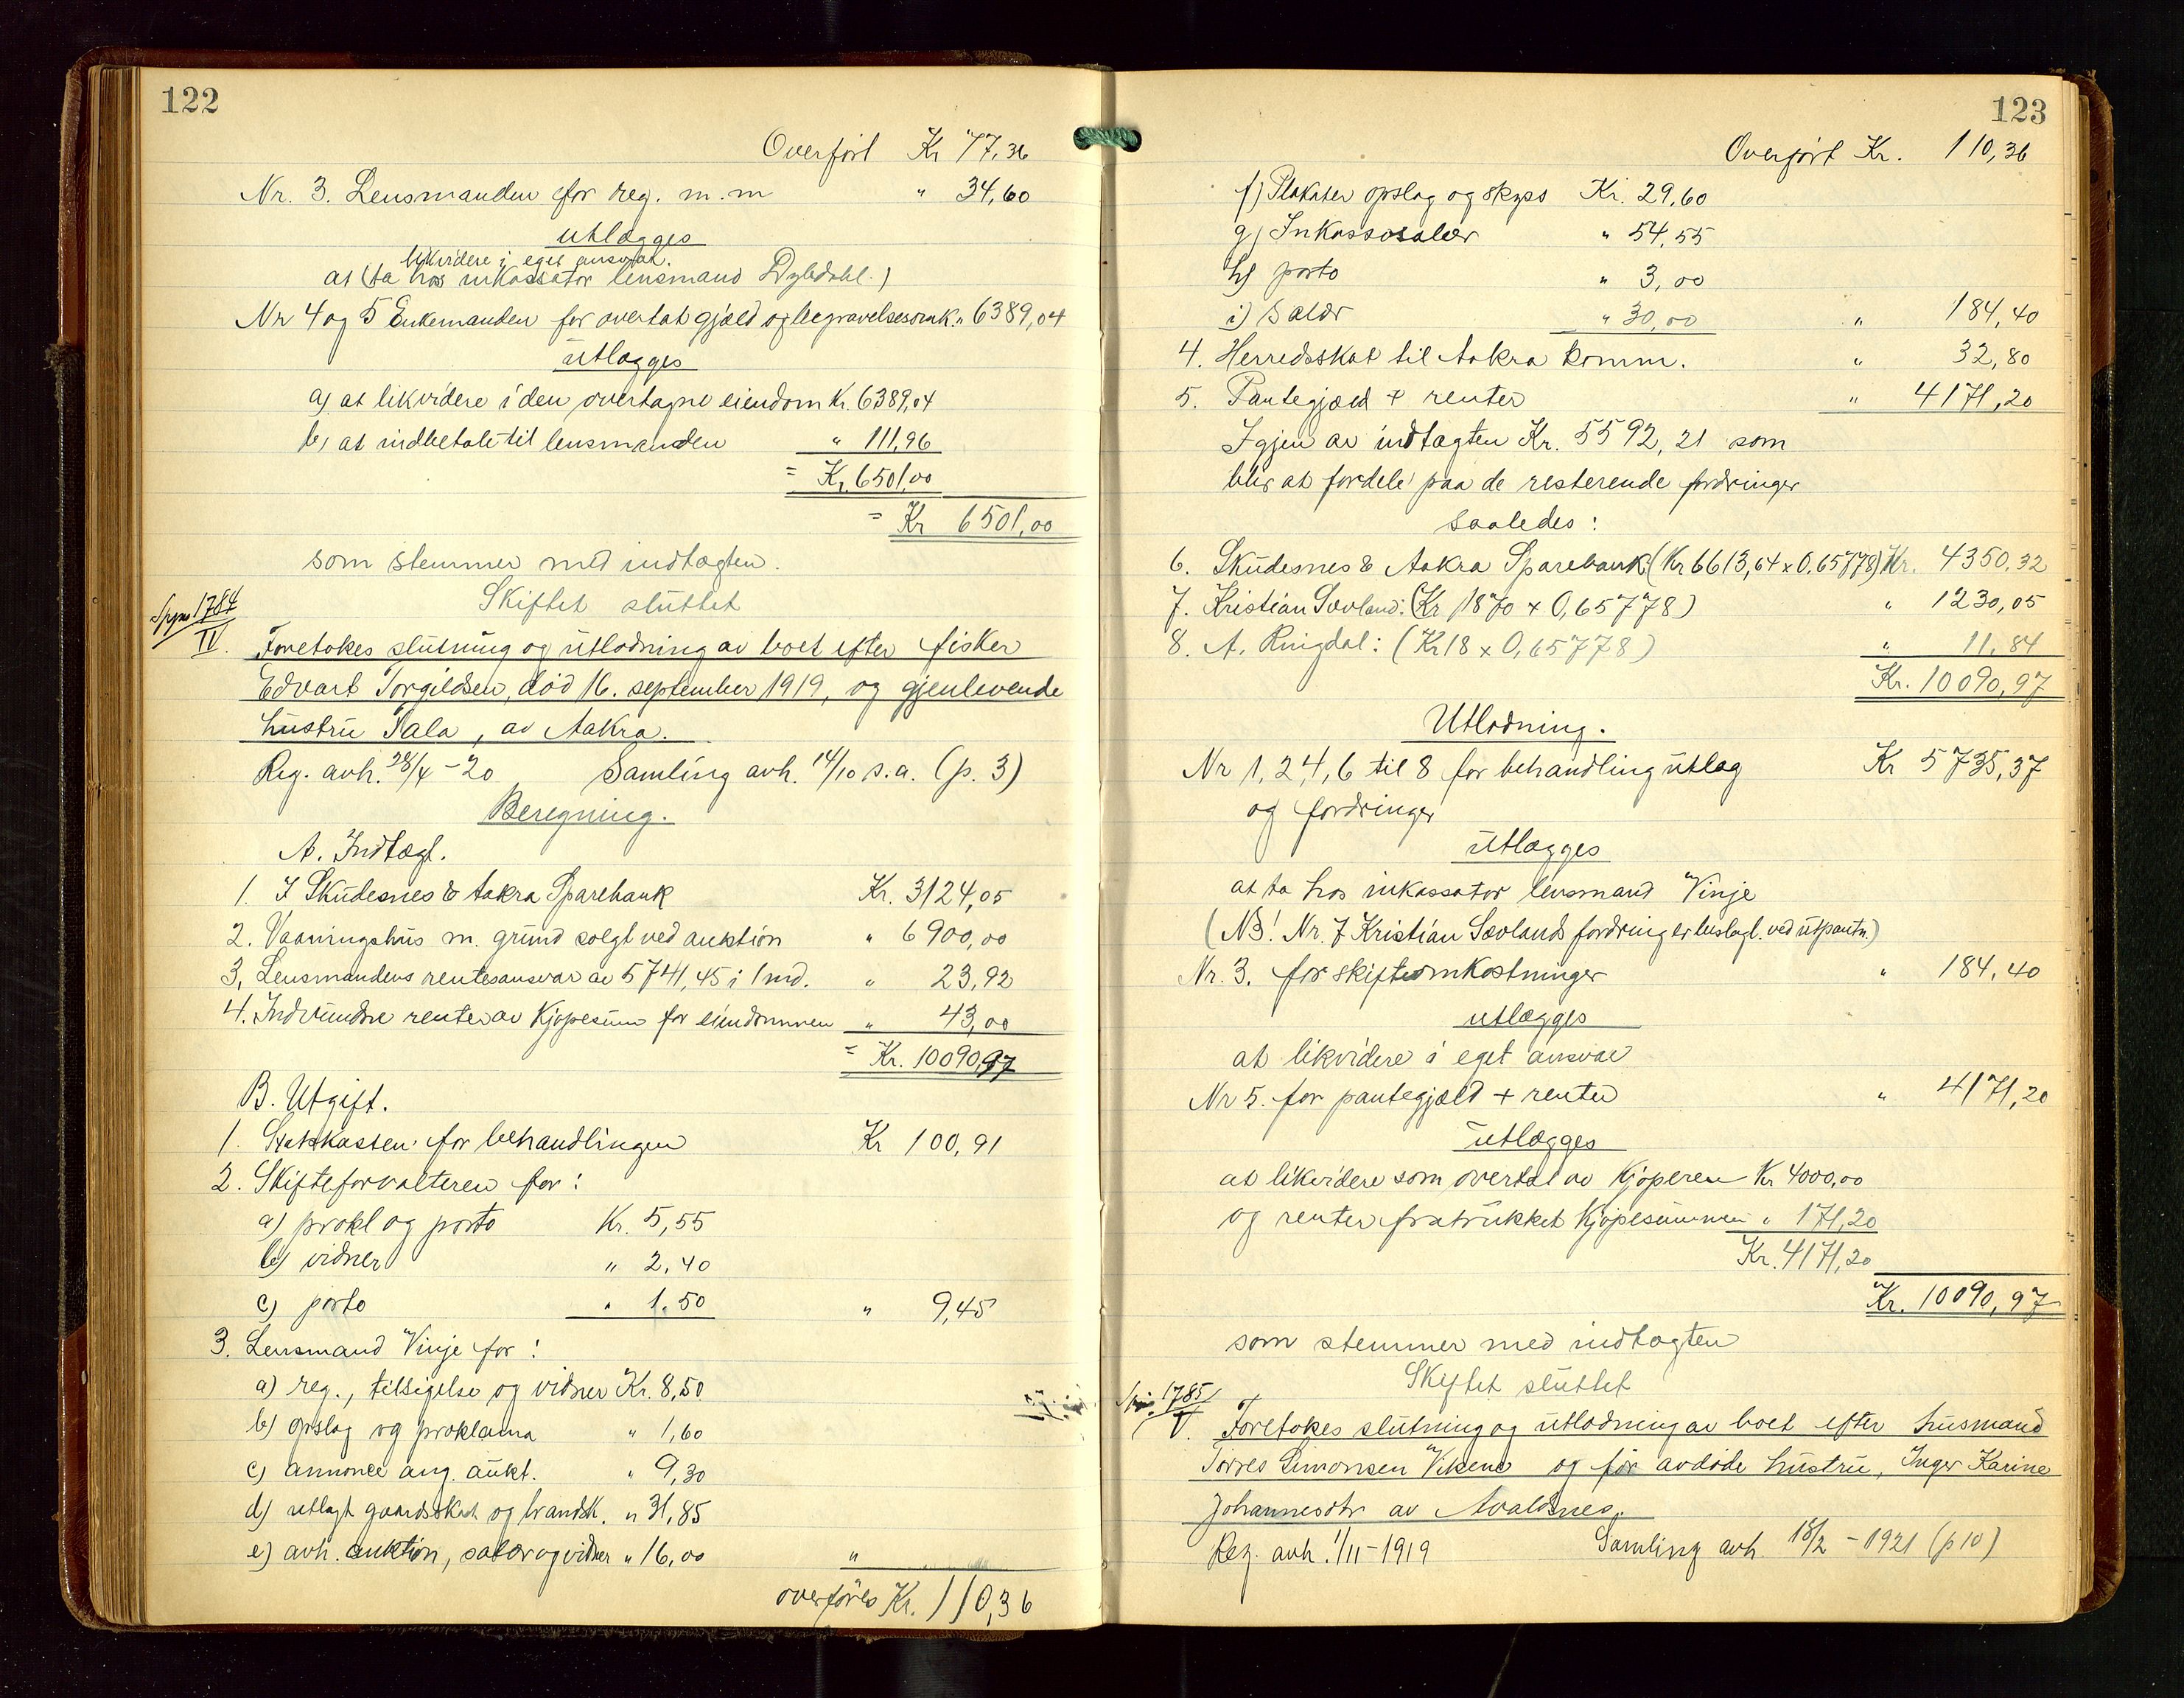 122
Overført Kr 77,36
Nr. 3. Lensmanden for reg. m. m " 34,60
utlægges
likvidere i eget ansvar.
at (ta hos inkassator lensmand Dybdahl.)
Nr 4 og 5 Enkemanden for overtat gjæld og begravelsesomk. " 6389,04
utlægges
a) at likvidere i den overtagne eiendom Kr. 6389,04
b) at indbetale til lensmanden " 111,96
= Kr. 6501,00
= Kr 6501,00
som stemmer med indtægten.
Skiftet sluttet
1784
IV. Foretokes slutning og utlodning av boet efter fisker
Edvart Torgildsen, død 16. september 1919, og gjenlevende
hustru Tala, av Aakra.
Reg. avh. 28/4 - 20 Samling avh. 14/10 s.a. (p. 3)
Beregning.
A. Indtægt.
1. I Skudesnes & Aakra Sparebank Kr. 3124,05
2. Vaaningshus m. grund solgt ved auktion " 6900,00
3. Lensmandens rentesansvar av 5741,45 i 1 md. " 23,92
4. Indvundne renter av kjøpesum for eiendommen " 43,00
= Kr. 10090,97
B. Utgift.
1. Statskassen for behandlingen Kr 100,91
2. Skifteforvalteren for:
a) prokl og porto Kr. 5,55
b) vidner " 2,40
c) porto " 1,50 " 9,45
3. Lensmand Vinje for:
a) reg., tilsigelse og vidner Kr. 8,50
b) opslag og proklama " 1,60
c) annonce ang. aukt. " 9,30
d) utlagt gaardsskat og brandk. " 31,85
e) avh. auktion, salær og vidner " 16,00 "
overføres Kr. 110,36
123
Overført Kr. 110,36
f) Plakater opslag og skyss Kr. 29,60
g) Inkassosalær " 54,55
h) porto " 3,00
i) Salær " 30,00 " 184,40
4. Herredsskat til Aakra komm. " 32,80
5. Pantegjæld + renter " 4171,20
Igjen av indtægten Kr. 5592,21 som
blir at fordele paa de resterende fordringer
saaledes:
6. Skudesnes & Aakra Sparebank (Kr 6613,64 x 0,65778) Kr. 4350,32
7. Kristian Sævland: (Kr 1870 x 0,65778) " 1230,05
8. A. Ringdal: (Kr 18 x 0,65778) " 11,84
Kr. 10090,97
Utlodning.
Nr 1, 2 4, 6 til 8 for behandling utlæg Kr 5735,37
og fordringer
utlægges
at ta hos inkassator lensmand Vinje
(NB! Nr. 7 Kristian Sævlands fordring er beslagl. ved utpantn.)
Nr. 3. for skifteomkostninger " 184,40
utlægges
at likvidere i eget ansvar
Nr 5. for pantegjæld + renter " 4171,20
utlægges
at likvidere som overtat av kjøperen Kr 4000,00
og renter fratrukket kjøpesummen " 171,20
Kr. 4171,20
Kr. 10090,97
som stemmer med indtægten
Skiftet sluttet
1785
V. Foretokes slutning og utlodning av boet efter husmand
Torres Simonsen Vikene og før avdøde hustru, Inger Karine
Johannesdtr av Avaldsnes.
Reg. avh. 1/11-1919 Samling avh. 18/2 - 1921 (p 10)